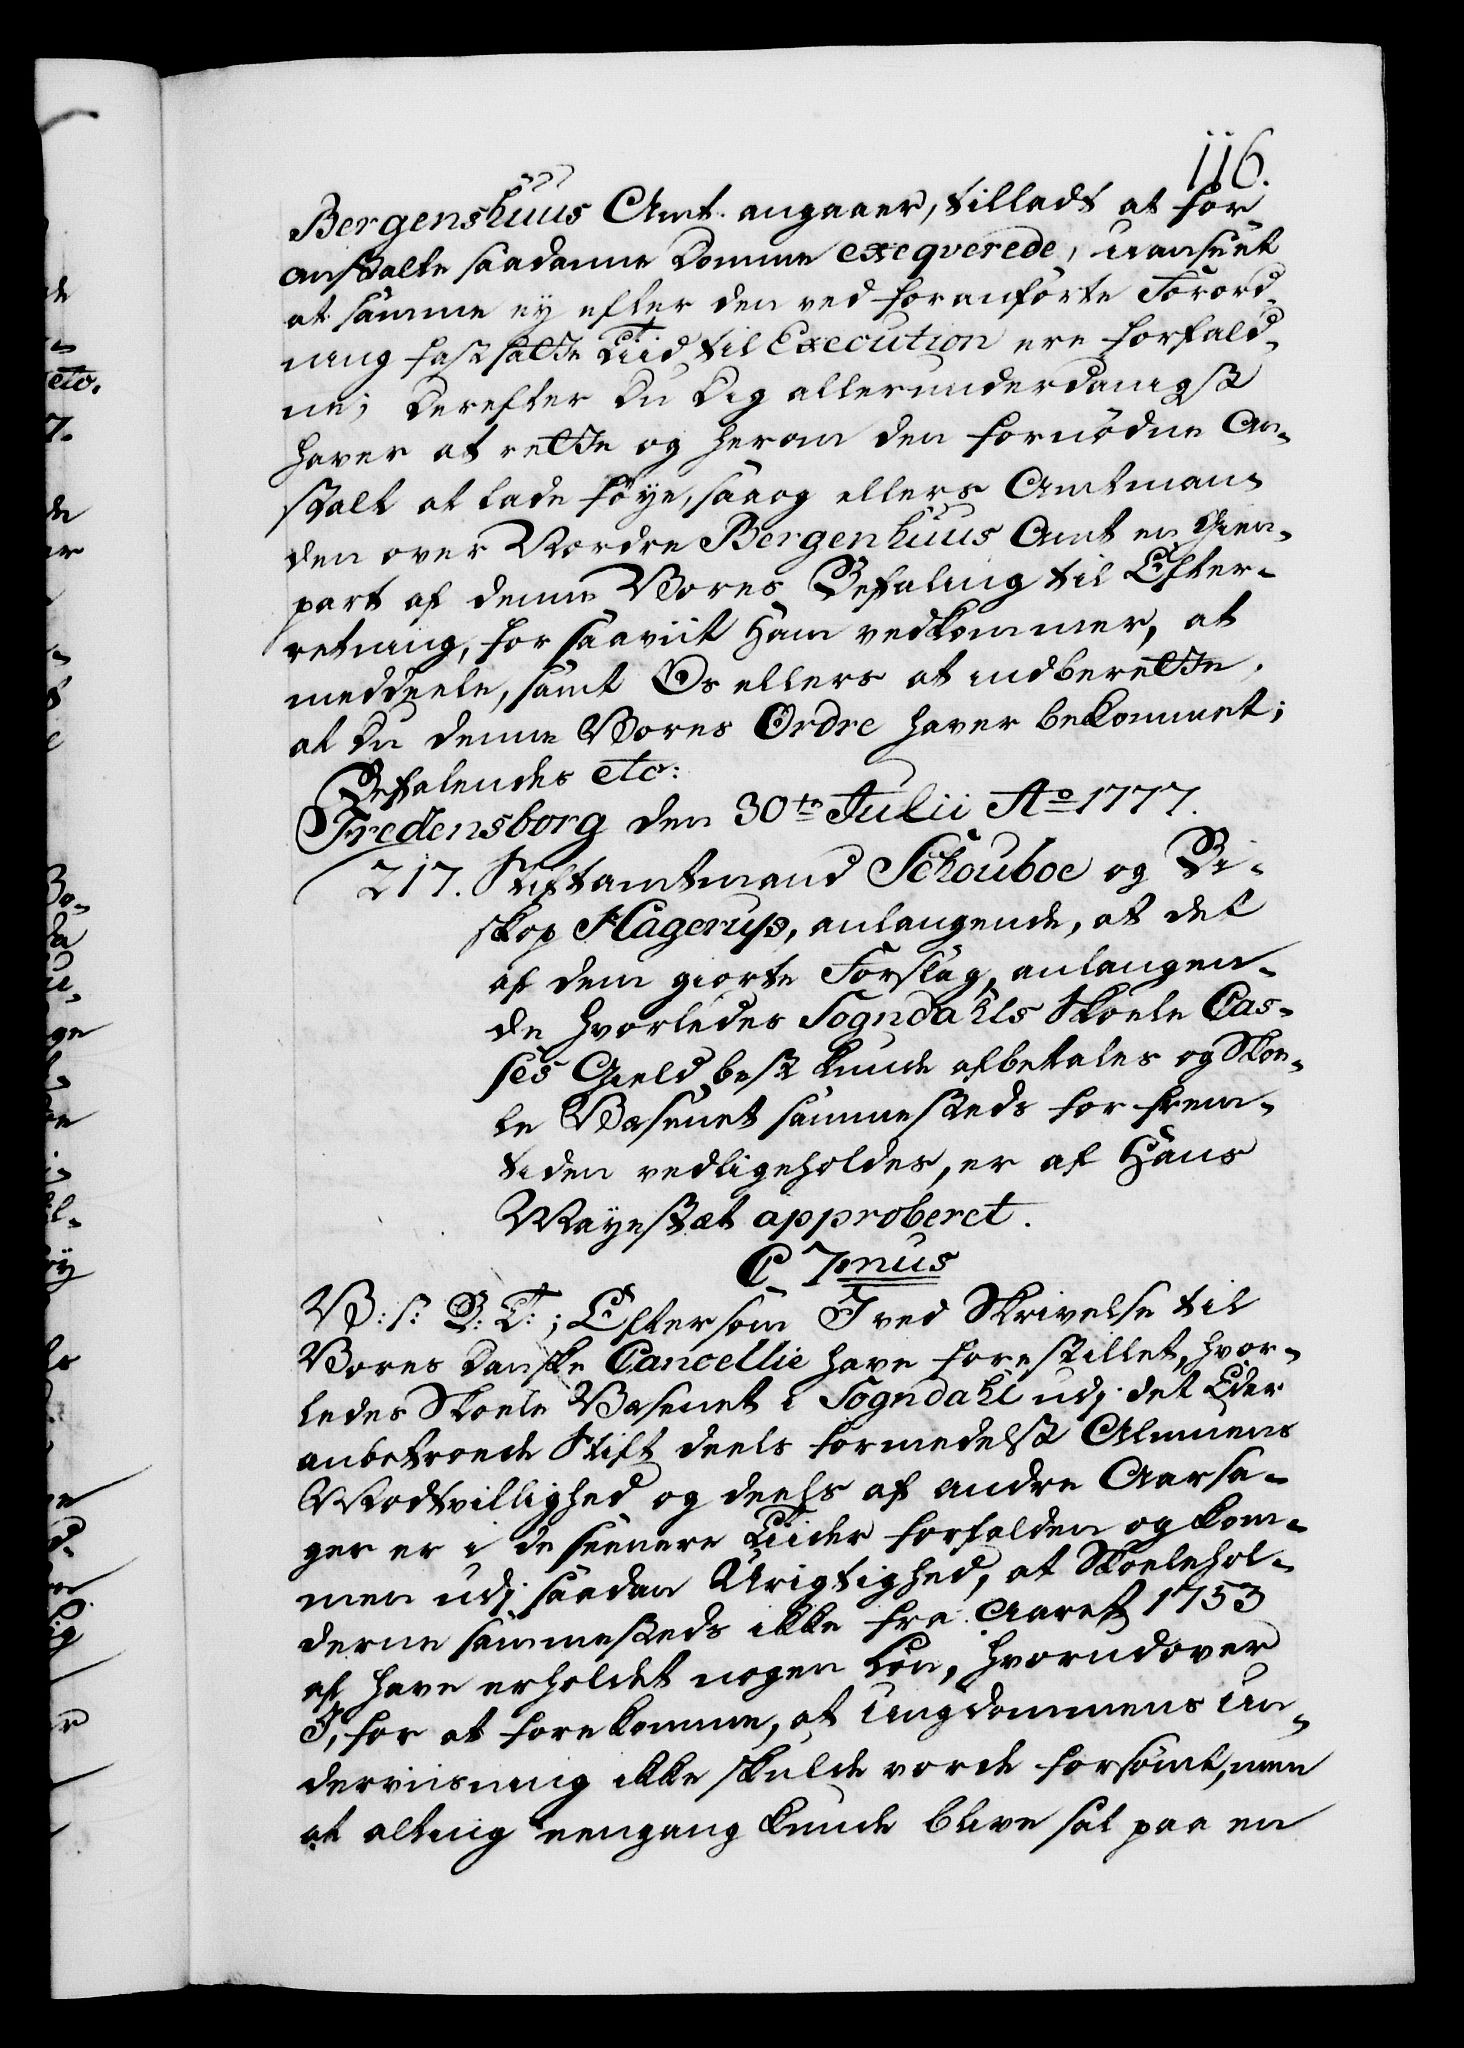 116.
Bergenshuus Amt angaaer, tilladt at for¬
anstalte saadanne Domme exeqverede, uanseet
at samme ey efter den ved foranførte Forord¬
ning fastsatte Tiid til Execution ere forfald¬
ne; Derefter Du Dig allerunderdanigst
haver at rette og herom den fornødne An¬
stalt at lade føye, saaog ellers Amtman¬
den over Nordre Bergenhuus Amt en Gien¬
part af denne Vores Befaling til Efter¬
retning, for saaviit ham vedkommer, at
meddeele, samt Os ellers at indberette,
at Du denne Vores Ordre haver bekommet;
Befalendes etc:
Fredensborg den 30te Julii Ao 1777.
217. Stiftamtmand Schouboe og Bi¬
skop Hagerup, anlangende, at det
af dem giorte Forslag, anlangen¬
de hvorledes Sogndahls Skoele Cas¬
ses Gield best kunde afbetales og Skoe¬
le Væsenet sammesteds for frem¬
tiden vedligeholdes, er af Hans
Mayestæt approberet.
C 7mus
V: s: G: T: ; Eftersom I ved Skrivelse til
Vores Danske Cancellie have forestillet, hvor¬
ledes Skoele Væsenet i Sogndahl udj det Eder
anbetroede Stift deels formedelst Almuens
Modtvillighed og deels af andre Aarsa¬
ger er i de seenere Tiider forfalden og kom¬
men udj saadan Urigtighed, at Skoelehol¬
derne sammesteds ikke fra Aaret 1753
af have erholdet nogen Løn, hvorudover
I, for at forekomme, at Ungdommens Un¬
derviisning ikke skulde vorde forsømt, men
at alting eengang kunde blive sat paa en